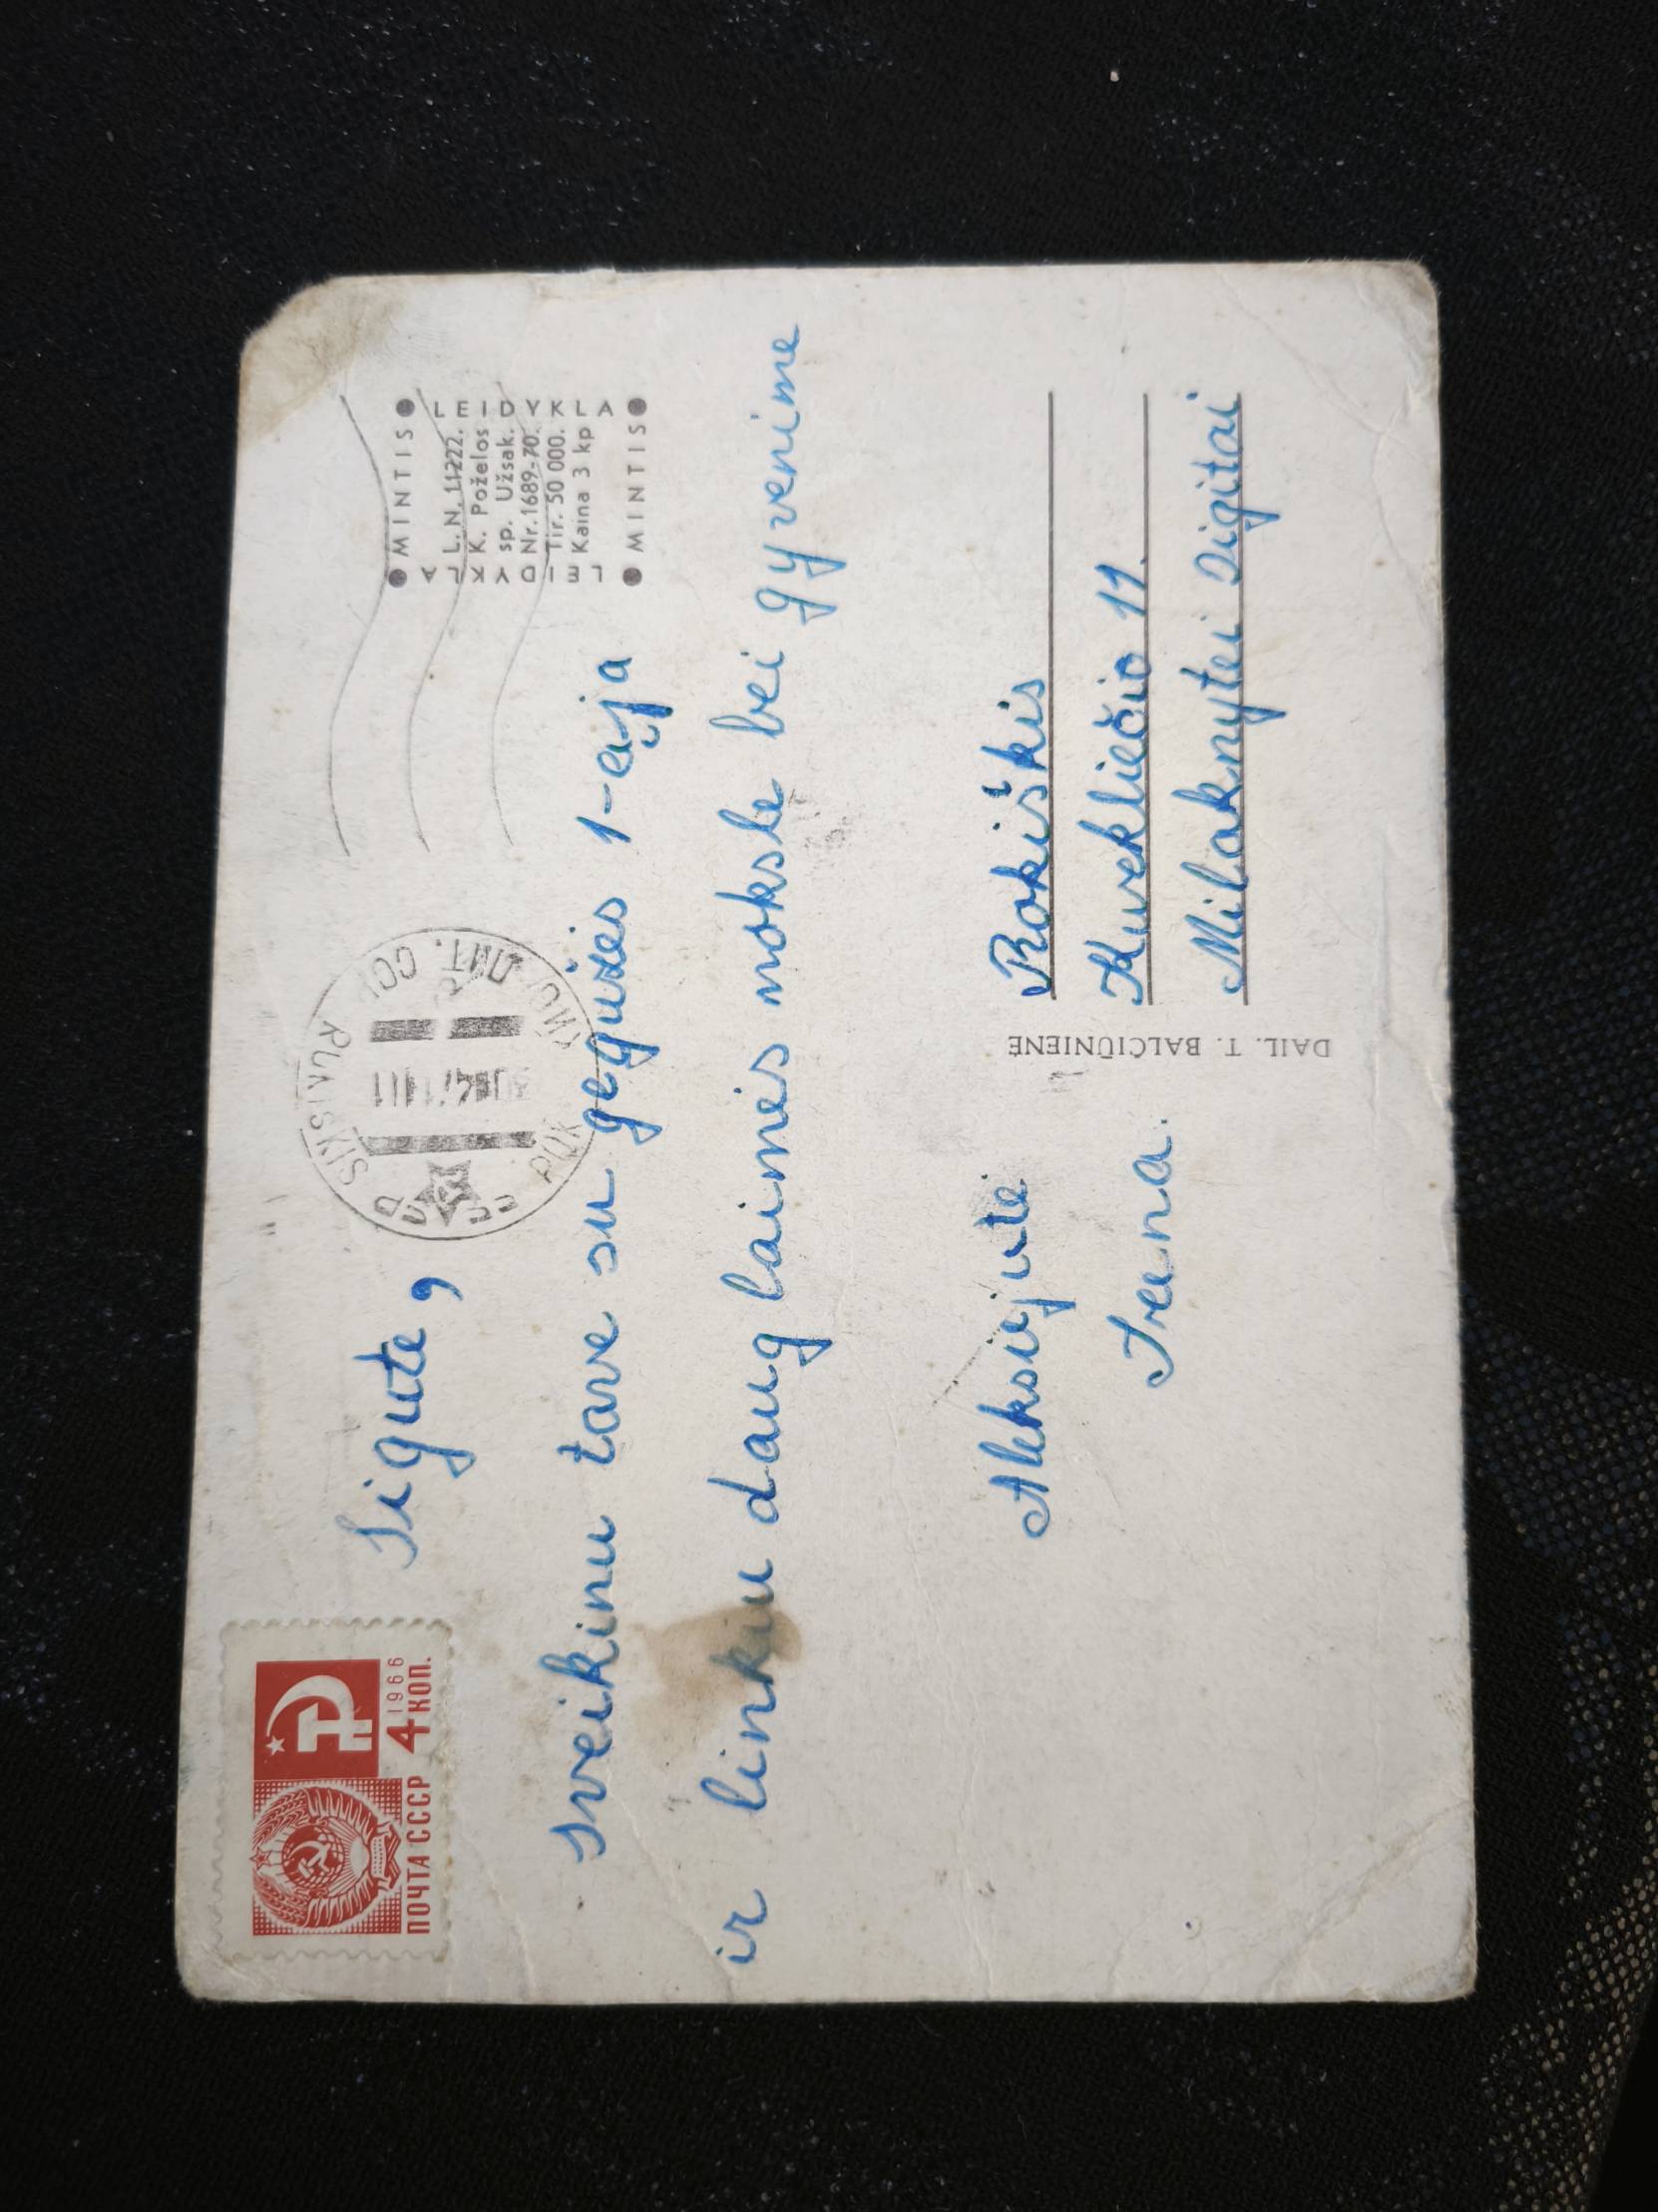 ПОЧТА СССР 4 КОП.
1966
Sigute,
● MINTIS ●
LEIDYKLA
L. N. 11222.
K. Poželos
sp. Užsak.
Nr. 1689-70.
Tir. 50 000.
Kaina 3 kp
LEIDYKLA
● MINTIS ●
sveikinu tave su gegužės 1-ąja
ir linkiu daug laimės moksle bei gyvenime
Aleksiejutė
Irena.
DAIL. T. BALČIŪNIENĖ
Rokiškis
Kuvekliečio 11.
Milaknytei Sigitai